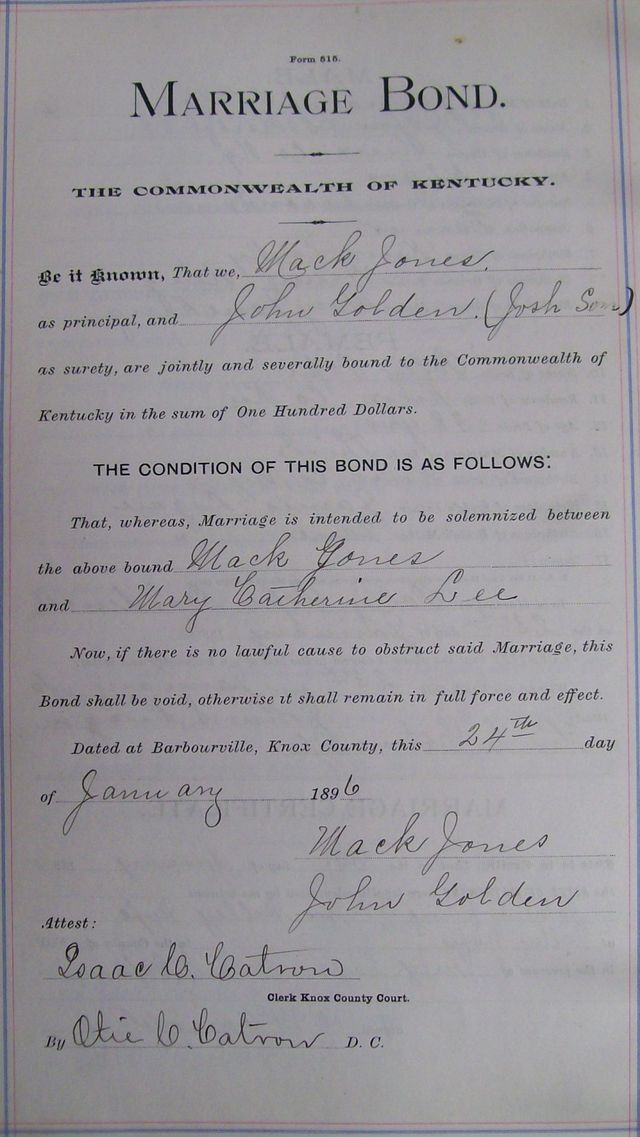 Form 515.
MARRIAGE BOND.
THE COMMONWEALTH OF KENTUCKY.
Be it Known, That we, Mack Jones.
as principal, and John Golden. (Josh Son)
as surety, are jointly and severally bound to the Commonwealth of
Kentucky in the sum of One Hundred Dollars.
THE CONDITION OF THIS BOND IS AS FOLLOWS:
That, whereas, Marriage is intended to be solemnized between
the above bound Mack Jones
and Mary Catherine Lee
Now, if there is no lawful cause to obstruct said Marriage, this
Bond shall be void, otherwise it shall remain in full force and effect.
Dated at Barbourville, Knox County, this 24th day
of January 1896
Mack Jones
John Golden
Attest:
Isaac C. Catron
Clerk Knox County Court.
By Otie C. Catron D. C.